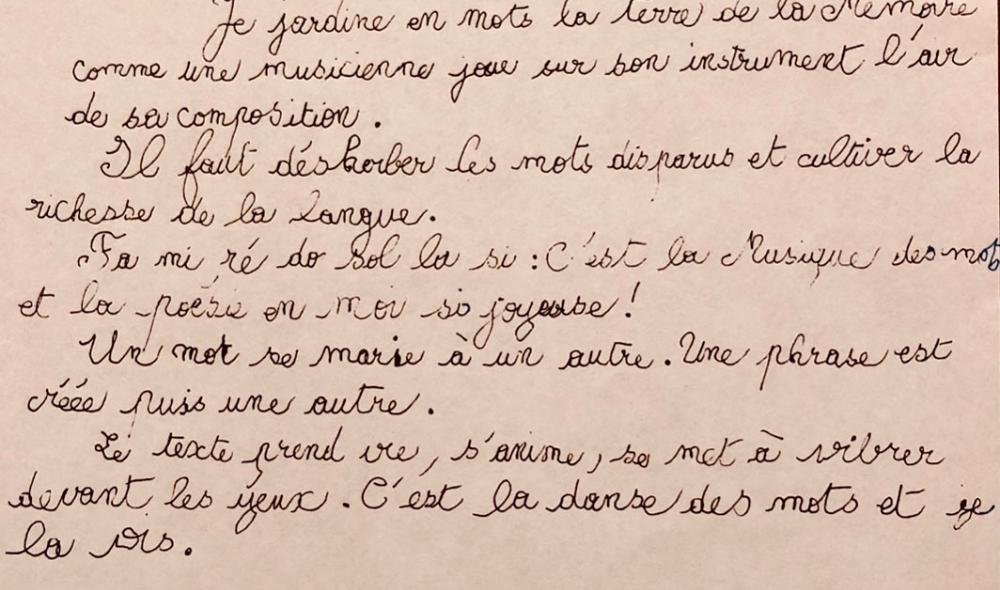 Je jardine en mots la terre de la Mémoire
comme une musicienne joue sur son instrument l'air
de sa composition.
Il faut désherber les mots disparus et cultiver la
richesse de la langue.
Fa mi ré do sol la si : C'est la Musique des mots
et la poésie en moi si joyeuse !
Un mot se marie à un autre. Une phrase est
créée puis une autre.
Le texte prend vie, s'anime, se met à vibrer
devant les yeux. C'est la danse des mots et je
la vis.